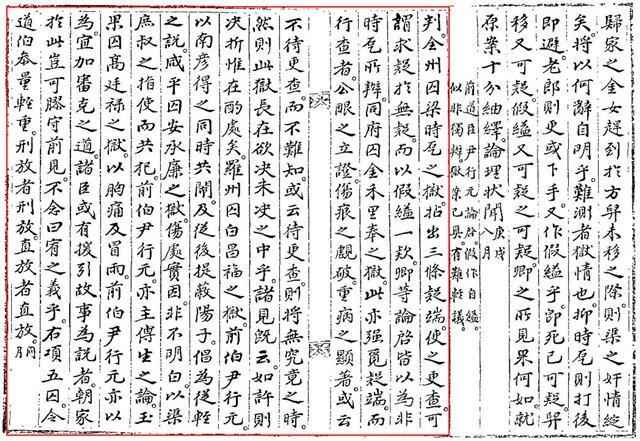 歸家之全女趕到於方昇未移之際則梁之奸情綻
矣將以何辭自明乎難測者獄情也抑時尾則打後
即避老郎則更或下手又作假縊乎卽死已可疑昇
移又可疑假縊又可疑之可疑卿之所見果何如就
原案十分紬繹論理狀聞庚戌八月
前道臣尹行元論啓假作自縊
似非獨辦案已具有難輕議
判全州囚梁時尾之獄拈出三條疑端使之更查可
謂求疑於無疑而以假縊一款卿等論啓皆以為非
時尾所辦同府囚金禾里奉之獄此亦强覓疑端而
行查者公眼之立證傷痕之覷破重病之顯著或云
不待更查而不難知或云待更查則將無究竟之時
然則此獄長在欲決未決之中乎諸見旣云如許則
決折惟在酌處矣羅州囚白昌福之獄前伯尹行元
以南彥得之同時共鬪及從後提敲陽子倡為從輕
之說咸平囚安承廉之獄傷處實因非不明白以梁
庶叔之指使而共犯前伯尹行元亦主傅生之論玉
果囚高廷祿之獄以胸痛及冒雨前伯尹行元亦以
為宜加審克之道諸臣或有援引故事為說者朝家
於此豈可膠守前見不念曰宥之義乎右項五囚令
道伯參量輕重刑放者刑放直放者直放同月